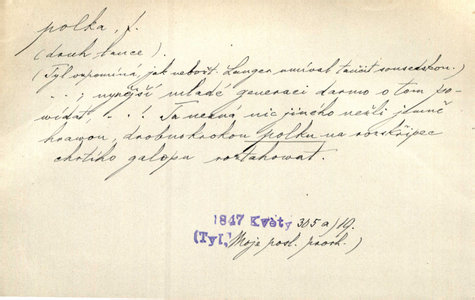 polka, f.
(druh tance).
(Tyl vzpomíná, jak nebošt. Langer umíval tančit sousedskou.)
. . ; nynější mladé generaci darmo o tom po-
vídat, . . . Ta nezná nic jiného nežli jemně
hranou, drobnokrokou polku na řeáskřipec
chrtího galopu roztahovat.
1847 Květy 305 a/19.
(Tyl, Moje post. proch.)